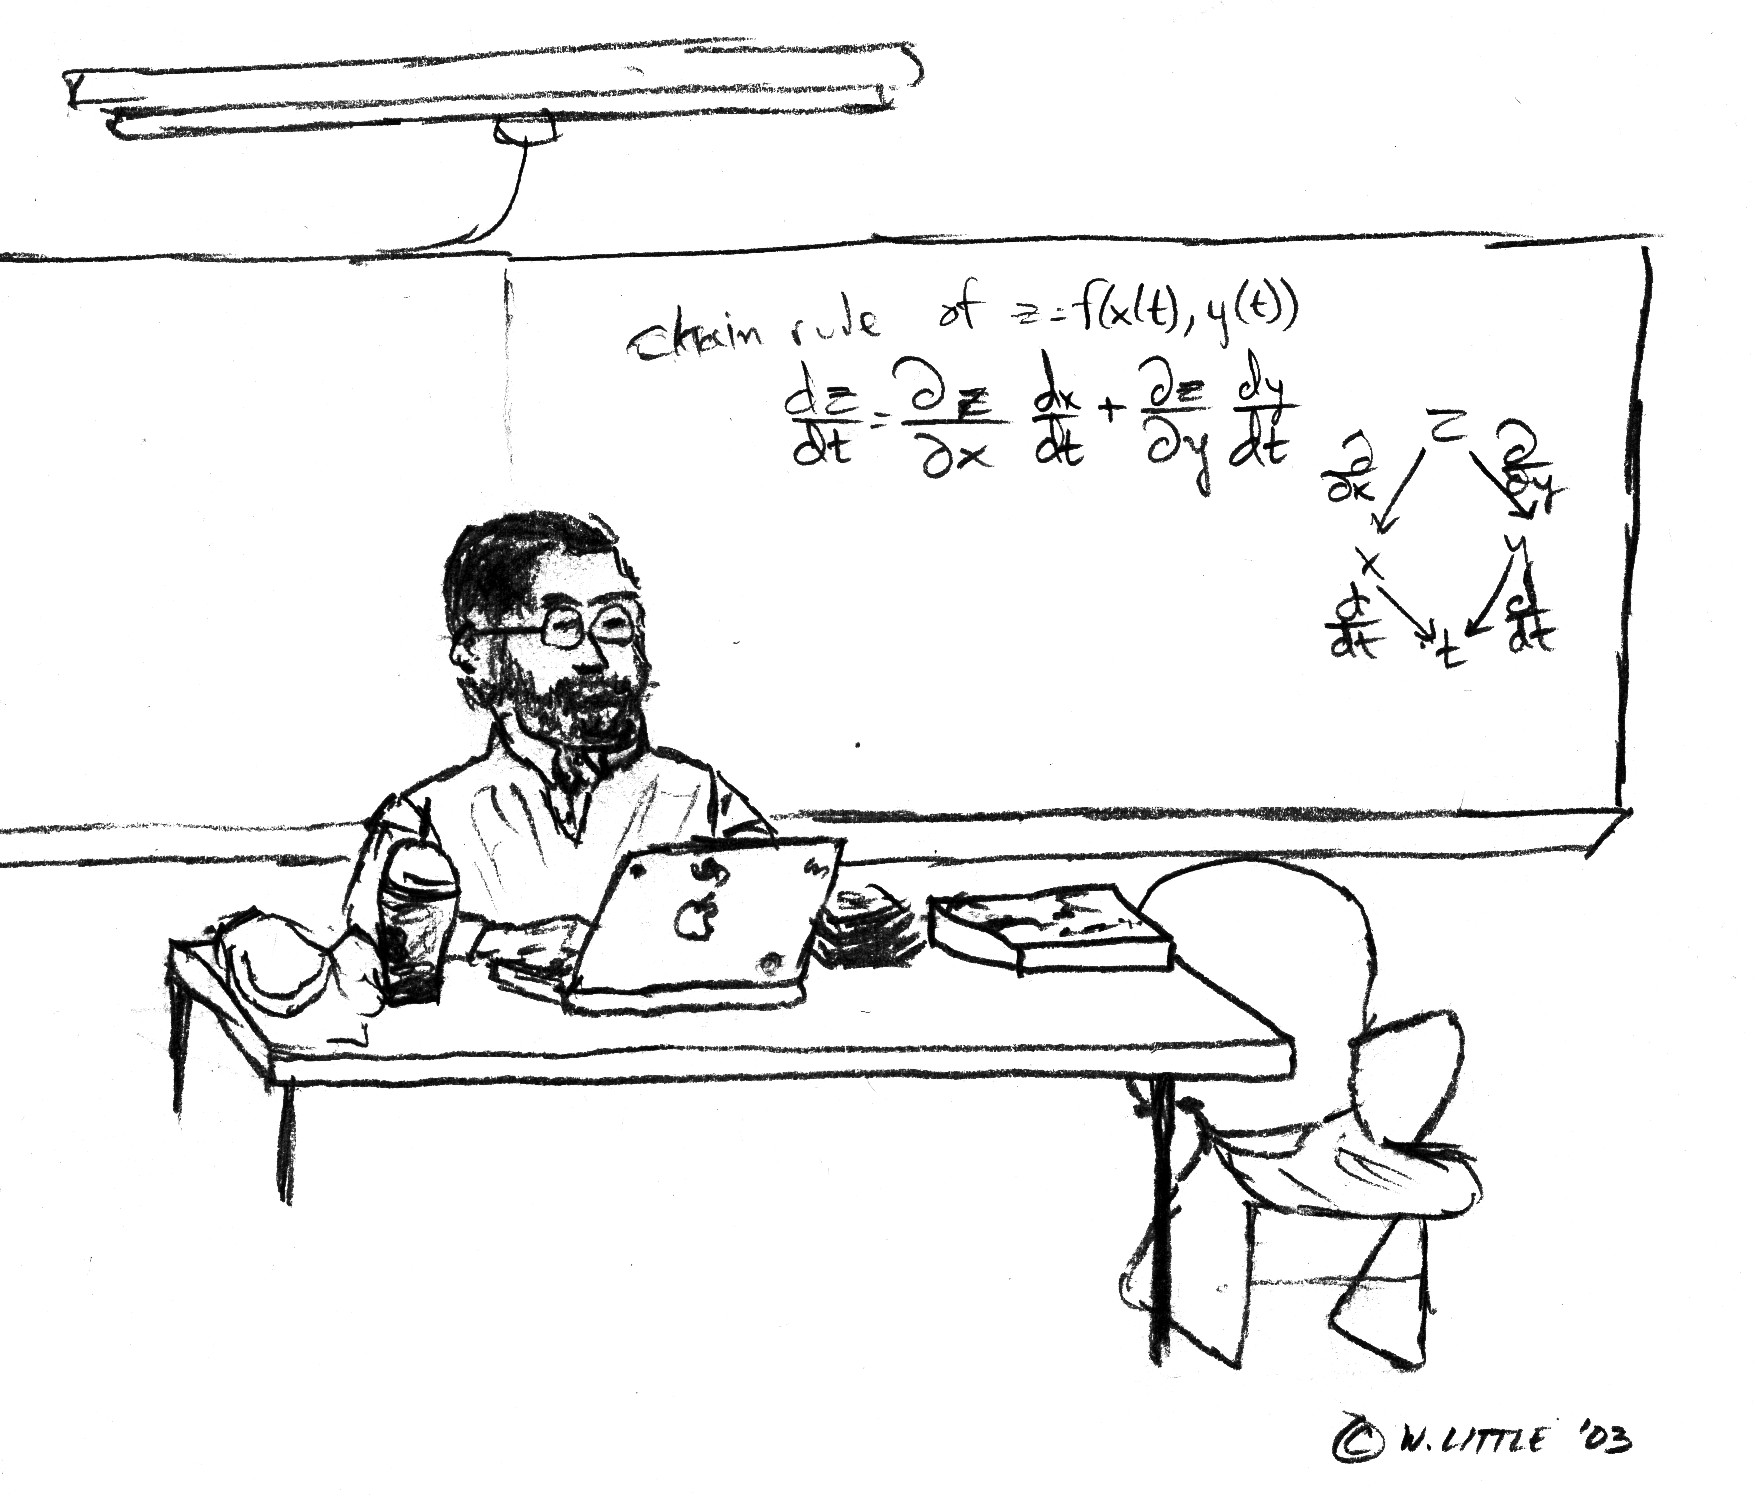 chain rule of z=f(x(t), y(t))
dz/dt = ∂z/∂x dx/dt + ∂z/∂y dy/dt
z
∂/∂x ∂/∂y
x y
d/dt d/dt
t
© W. LITTLE '03